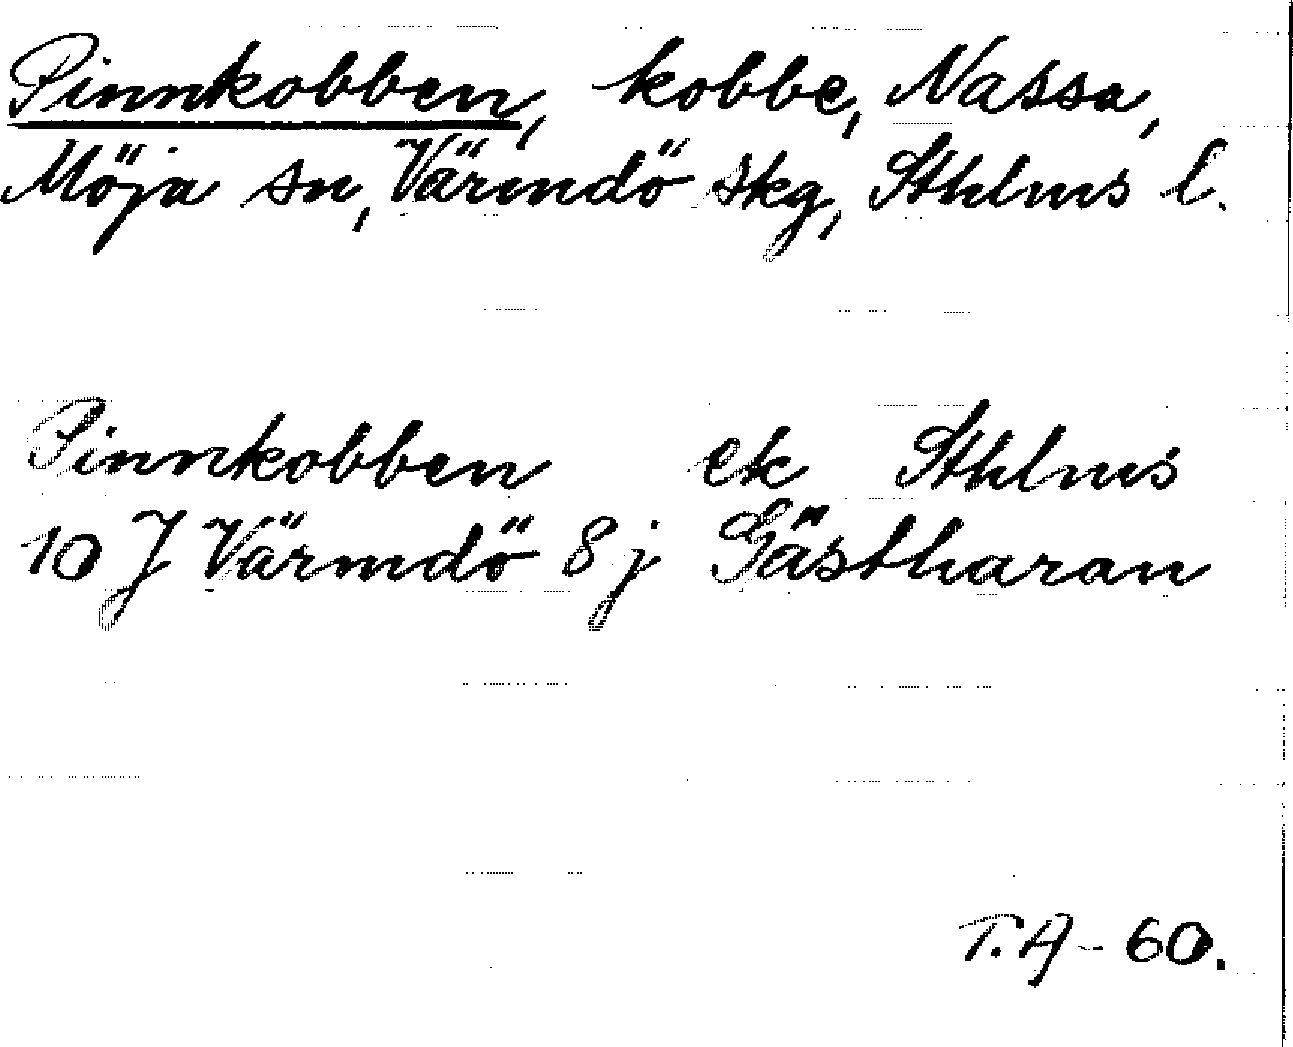 Pinnkobben, kobbe, Nassa,
Möja sn, Värmdö skg, Sthlms l.
Pinnkobben ek Sthlms
10 J Värmdö 8 j Gästharan
T.A - 60.